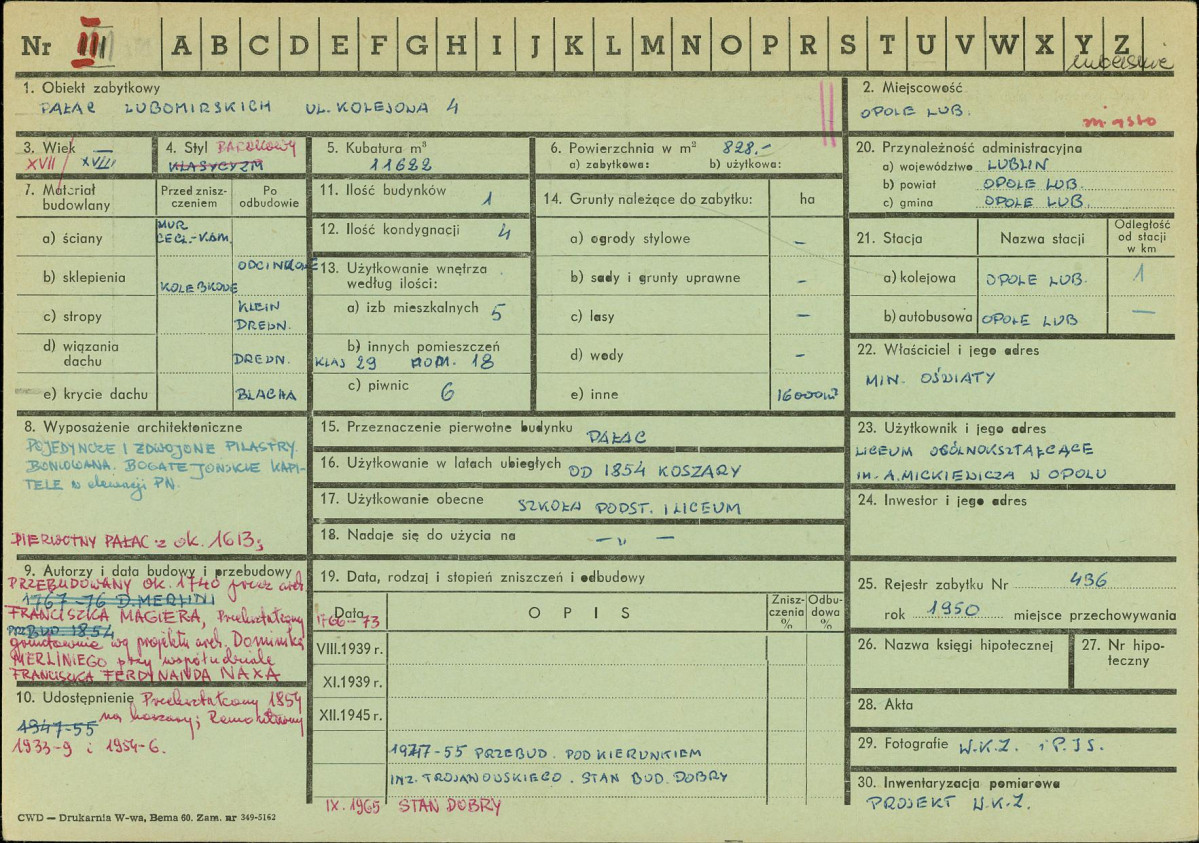 Nr III A B C D E F G H I J K L M N O P R S T U V W X Y Z
lubelskie
1. Obiekt zabytkowy
PAŁAC LUBOMIRSKICH UL. KOLEJOWA 4
2. Miejscowość
OPOLE LUB.
miasto
3. Wiek
XVII / XVIII
4. Styl BAROKOWY
KLASYCYZM
5. Kubatura m³
11622
6. Powierzchnia w m² 828.-
a) zabytkowa: b) użytkowa:
20. Przynależność administracyjna
a) województwo LUBLIN
b) powiat OPOLE LUB.
c) gmina OPOLE LUB.
7. Materiał budowlany
Przed zniszczeniem
Po odbudowie
a) ściany MUR CEGŁ.-KAM.
b) sklepienia KOLEBKOWE ODCINKOWE
c) stropy KLEIN DREWN.
d) wiązania dachu DREWN.
e) krycie dachu BLACHA
11. Ilość budynków 1
12. Ilość kondygnacji 4
13. Użytkowanie wnętrza według ilości:
a) izb mieszkalnych 5
b) innych pomieszczeń
KLAS 29 POM. 18
c) piwnic 6
14. Grunty należące do zabytku: ha
a) ogrody stylowe –
b) sady i grunty uprawne –
c) lasy –
d) wody –
e) inne 16000m²
21. Stacja
Nazwa stacji
Odległość od stacji w km
a) kolejowa OPOLE LUB. 1
b) autobusowa OPOLE LUB —
22. Właściciel i jego adres
MIN. OŚWIATY
8. Wyposażenie architektoniczne
POJEDYNCZE I ZDWOJONE PILASTRY.
BONIOWANA. BOGATE JOŃSKIE KAPI-
TELE w elewacji PN.
PIERWOTNY PAŁAC z ok. 1613;
15. Przeznaczenie pierwotne budynku PAŁAC
16. Użytkowanie w latach ubiegłych OD 1854 KOSZARY
17. Użytkowanie obecne SZKOŁA PODST. I LICEUM
18. Nadaje się do użycia na – „ –
23. Użytkownik i jego adres
LICEUM OGÓLNOKSZTAŁCĄCE
im. A. MICKIEWICZA W OPOLU
24. Inwestor i jego adres
9. Autorzy i data budowy i przebudowy
PRZEBUDOWANY OK. 1740 przez arch.
1767-76 D. MERLINI
FRANCISZKA MAGIERA, Przekształcony
PRZEBUD 1854
gruntownie wg projektu arch. Dominika
MERLINIEGO przy współudziale
FRANCISZKA FERDYNANDA NAXA
10. Udostępnienie Przekształcony 1854
1947-55 na koszary; Remontowany
1933-9 i 1954-6.
19. Data, rodzaj i stopień zniszczeń i odbudowy
Data OPIS Zniszczenia % Odbudowa %
1766-73
VIII.1939 r.
XI.1939 r.
XII.1945 r.
1947-55 PRZEBUD. POD KIERUNKIEM
INŻ. TROJANOWSKIEGO. STAN BUD. DOBRY
IX. 1965 STAN DOBRY
25. Rejestr zabytku Nr 436
rok 1950 miejsce przechowywania
26. Nazwa księgi hipotecznej
27. Nr hipoteczny
28. Akta
29. Fotografie W.K.Z. i P.I.S.
30. Inwentaryzacja pomiarowa
PROJEKT W.K.Z.
CWD — Drukarnia W-wa, Bema 60. Zam. nr 349-5162